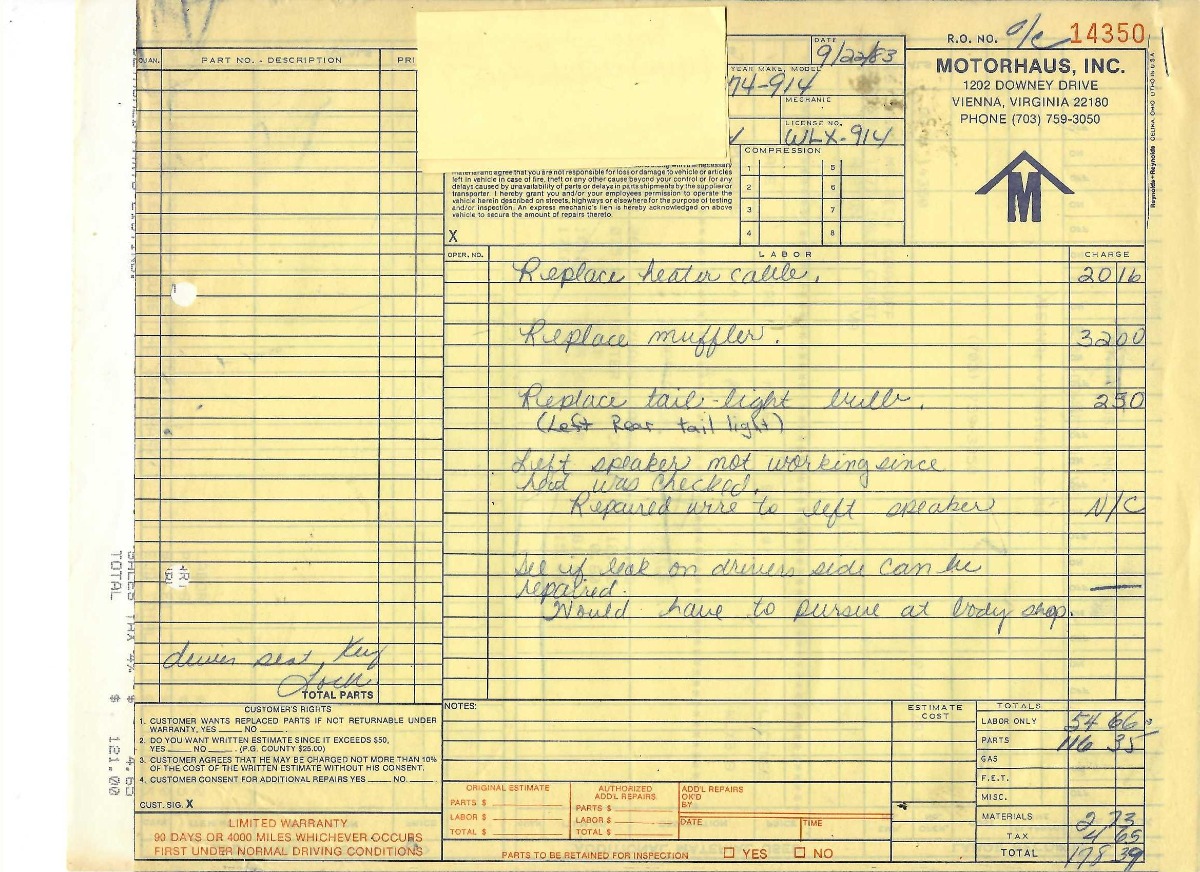 R.O. NO. o/c 14350
DATE
9/22/83
MOTORHAUS, INC.
1202 DOWNEY DRIVE
VIENNA, VIRGINIA 22180
PHONE (703) 759-3050
M
Reynolds+Reynolds CELINA, OHIO LITHO IN U.S.A.
QUAN. PART NO. - DESCRIPTION PRI
YEAR MAKE, MODEL
74-914
MECHANIC
LICENSE NO.
WLX-914
COMPRESSION
1 5
2 6
3 7
4 8
material and agree that you are not responsible for loss or damage to vehicle or articles
left in vehicle in case of fire, theft or any other cause beyond your control or for any
delays caused by unavailability of parts or delays in parts shipments by the supplier or
transporter. I hereby grant you and/or your employees permission to operate the
vehicle herein described on streets, highways or elsewhere for the purpose of testing
and/or inspection. An express mechanic's lien is hereby acknowledged on above
vehicle to secure the amount of repairs thereto.
X
OPER. NO. LABOR CHARGE
Replace heater cable. 20 16
Replace muffler. 32 00
Replace tail-light bulb. 2 50
(Left Rear tail light)
Left speaker not working since
heat was checked.
Repaired wire to left speaker N/C
See if leak on drivers side can be
repaired. —
Would have to pursue at body shop.
driver seat, Key
Lock
TOTAL PARTS
SALES TAX 4% $ 4.65
TOTAL $ 121.00
CUSTOMER'S RIGHTS
1. CUSTOMER WANTS REPLACED PARTS IF NOT RETURNABLE UNDER
WARRANTY, YES ____ NO ____.
2. DO YOU WANT WRITTEN ESTIMATE SINCE IT EXCEEDS $50,
YES ____ NO ____. (P.G. COUNTY $25.00)
3. CUSTOMER AGREES THAT HE MAY BE CHARGED NOT MORE THAN 10%
OF THE COST OF THE WRITTEN ESTIMATE WITHOUT HIS CONSENT.
4. CUSTOMER CONSENT FOR ADDITIONAL REPAIRS YES ____ NO.
CUST. SIG. X
LIMITED WARRANTY
90 DAYS OR 4000 MILES WHICHEVER OCCURS
FIRST UNDER NORMAL DRIVING CONDITIONS
NOTES:
ESTIMATE
COST
ORIGINAL ESTIMATE
PARTS $
LABOR $
TOTAL $
AUTHORIZED
ADD'L REPAIRS
PARTS $
LABOR $
TOTAL $
ADD'L REPAIRS
OK'D
BY
DATE TIME
PARTS TO BE RETAINED FOR INSPECTION YES NO
TOTALS
LABOR ONLY 54 66
PARTS 116 35
GAS
F.E.T.
MISC.
MATERIALS 2 73
TAX 4 65
TOTAL 178 39